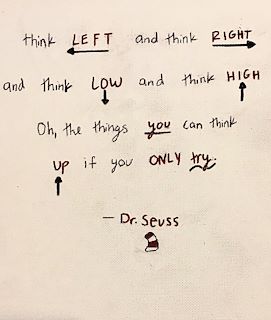 think LEFT and think RIGHT
and think LOW and think HIGH
Oh, the things you can think
up if you ONLY try.
— Dr. Seuss